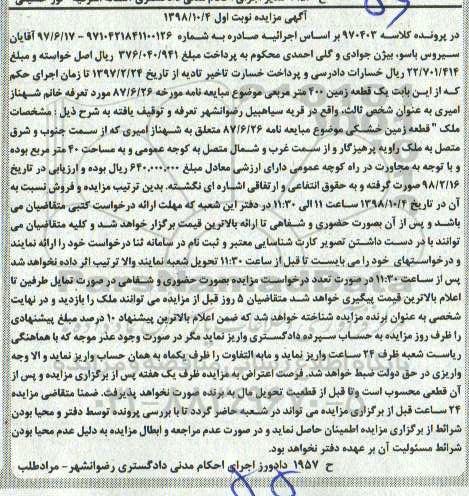 آگهی مزایده نوبت اول ۱۳۹۸/۱۰/۴
در پرونده کلاسه ۹۷۰۴۰۳ بر اساس اجرائیه صادره به شماره ۹۷۱۰۴۲۱۸۴۱۱۰۰۱۲۶ - ۹۷/۶/۱۷ آقایان
سیروس باسو، بیژن جوادی و گلی احمدی محکوم به پرداخت مبلغ ۳۷۶/۰۴۰/۹۴۱ ریال اصل خواسته و مبلغ
۲۲/۷۰۱/۴۱۴ ریال خسارات دادرسی و پرداخت خسارت تاخیر تادیه از تاریخ ۱۳۹۷/۲/۲۴ تا زمان اجرای حکم
که از این بابت یک قطعه زمین ۴۰۰ متر مربعی موضوع مبایعه نامه مورخه ۸۷/۶/۲۶ مورد تعرفه خانم شهناز
امیری به عنوان شخص ثالث، واقع در قریه سیاهبیل رضوانشهر تعرفه و توقیف یافته به شرح ذیل : مشخصات
ملک "قطعه زمین خشکی موضوع مبایعه نامه ۸۷/۶/۲۶ متعلق به شهناز امیری که از سمت جنوب و شرق
متصل به ملک راویه پرهیزگار و از سمت غرب و شمال متصل به کوچه عمومی و به مساحت ۴۰۰ متر مربع بوده
و با توجه به مجاورت در راه کوچه عمومی دارای ارزشی معادل مبلغ ۶۴۰,۰۰۰,۰۰۰ ریال بوده و ارزیابی در تاریخ
۹۸/۲/۱۶ صورت گرفته و به حقوق انتفاعی و ارتفاقی اشاره ای نگشته. بدین ترتیب مزایده و فروش نسبت به
آن در تاریخ ۱۳۹۸/۱۰/۴ ساعت ۱۱ الی ۱۱:۳۰ در دفتر این شعبه که مهلت ارائه درخواست کتبی متقاضیان می
باشد و پس از آن بصورت حضوری و شفاهی تا ارائه بالاترین قیمت برگزار خواهد شد و کلیه متقاضیان می
توانند با در دست داشتن تصویر کارت شناسایی معتبر و ثبت نام در سامانه ثنا درخواست خود را ارائه نمایند
و درخواستهای خود را می بایست تا قبل از ساعت ۱۱:۳۰ تحویل شعبه نمایند والا ترتیب اثر داده نخواهد شد
پس از ساعت ۱۱:۳۰ در صورت تعدد درخواست مزایده بصورت حضوری و شفاهی در صورت تمایل طرفین تا
اعلام بالاترین قیمت پیگیری خواهد شد. متقاضیان ۵ روز قبل از مزایده می توانند ملک را بازدید و در نهایت
شخصی به عنوان برنده مزایده شناخته خواهد شد که ضمن اعلام بالاترین پیشنهاد ۱۰ درصد مبلغ پیشنهادی
را ظرف روز مزایده به حساب سپرده دادگستری واریز نماید مگر در صورت وجود عذر موجه که با هماهنگی
ریاست شعبه ظرف ۲۴ ساعت واریز نماید و مابه التفاوت را ظرف یکماه به همان حساب واریز نماید و الا وجه
واریزی در حق دولت ضبط خواهد شد. فرصت اعتراض به مزایده ظرف یک هفته پس از برگزاری مزایده و پس از
آن قطعی محسوب است و تا قبل از قطعیت تحویل مال به برنده صورت نخواهد پذیرفت. ضمنا متقاضی مزایده
۲۴ ساعت قبل از برگزاری مزایده می تواند در شعبه حاضر گردد تا با بررسی پرونده توسط دفتر و محیا بودن
شرائط از برگزاری مزایده اطمینان حاصل نماید و در صورت عدم مراجعه و ابطال مزایده به دلیل عدم محیا بودن
شرائط مسئولیت آن بر عهده دفتر نخواهد بود.
ح ۱۹۵۷ دادورز اجرای احکام مدنی دادگستری رضوانشهر- مرادطلب